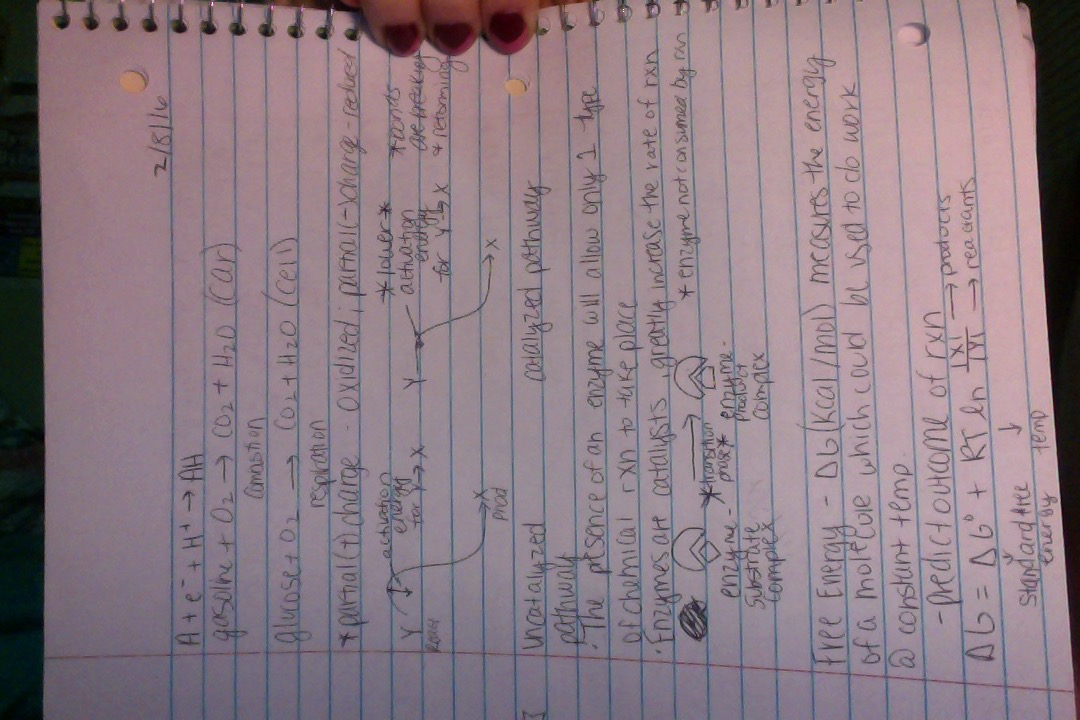 2/8/16
A + e⁻ + H⁺ → AH
gasoline + O₂ → CO₂ + H₂O (car)
combustion
glucose + O₂ → CO₂ + H₂O (cell)
respiration
*partial (+) charge - oxidized; partial (-) charge - reduced
activation energy for Y→X
Y
X
prod
Y
X
*lower* activation energy for Y→X
*bonds are breaking + reforming
uncatalyzed pathway
catalyzed pathway
· The presence of an enzyme will allow only 1 type
of chemical rxn to take place
· Enzymes are catalysts, greatly increase the rate of rxn
*enzyme not consumed by rxn
enzyme-substrate complex
*transition phase*
enzyme-product complex
Free Energy - ΔG (Kcal/mol) measures the energy
of a molecule which could be used to do work
@ constant temp.
- predict outcome of rxn
ΔG = ΔG° + RT ln [X]/[Y] → products → reactants
standard free energy
temp